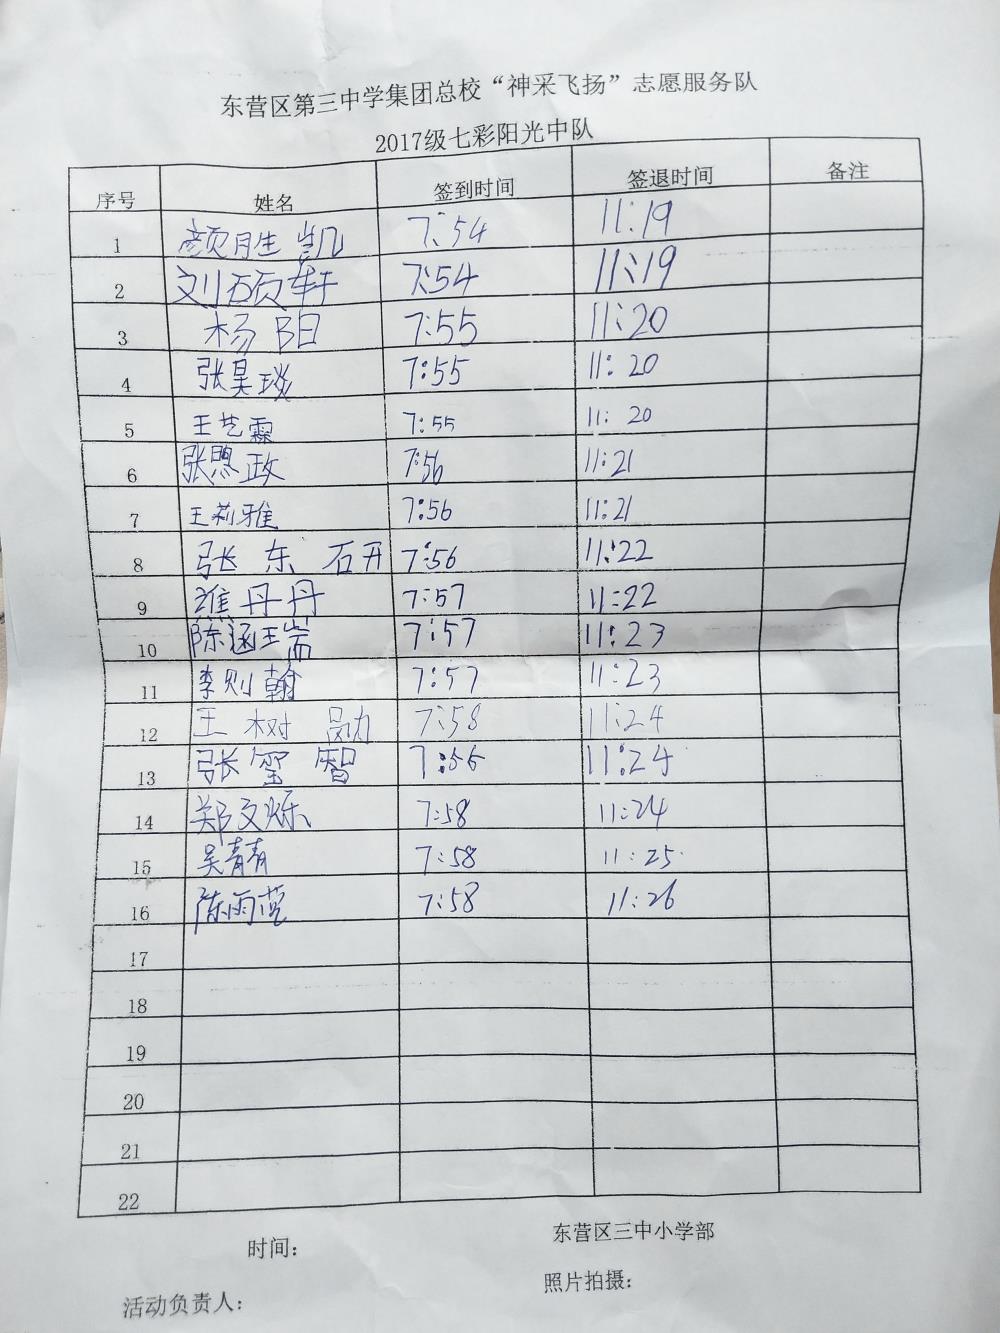 东营区第三中学集团总校“神采飞扬”志愿服务队
2017级七彩阳光中队
序号 姓名 签到时间 签退时间 备注
1 颜胜凯 7:54 11:19
2 刘硕轩 7:54 11:19
3 杨阳 7:55 11:20
4 张昊琰 7:55 11:20
5 王艺霖 7:55 11:20
6 张煦政 7:56 11:21
7 王莉雅 7:56 11:21
8 张东 7:56 11:22
9 谯丹丹 7:57 11:22
10 陈涵瑞 7:57 11:23
11 李则翰 7:57 11:23
12 王树勋 7:58 11:24
13 张玺智 7:56 11:24
14 郑文烁 7:58 11:24
15 吴青青 7:58 11:25
16 陈雨莹 7:58 11:26
17
18
19
20
21
22
时间： 东营区三中小学部
活动负责人： 照片拍摄：